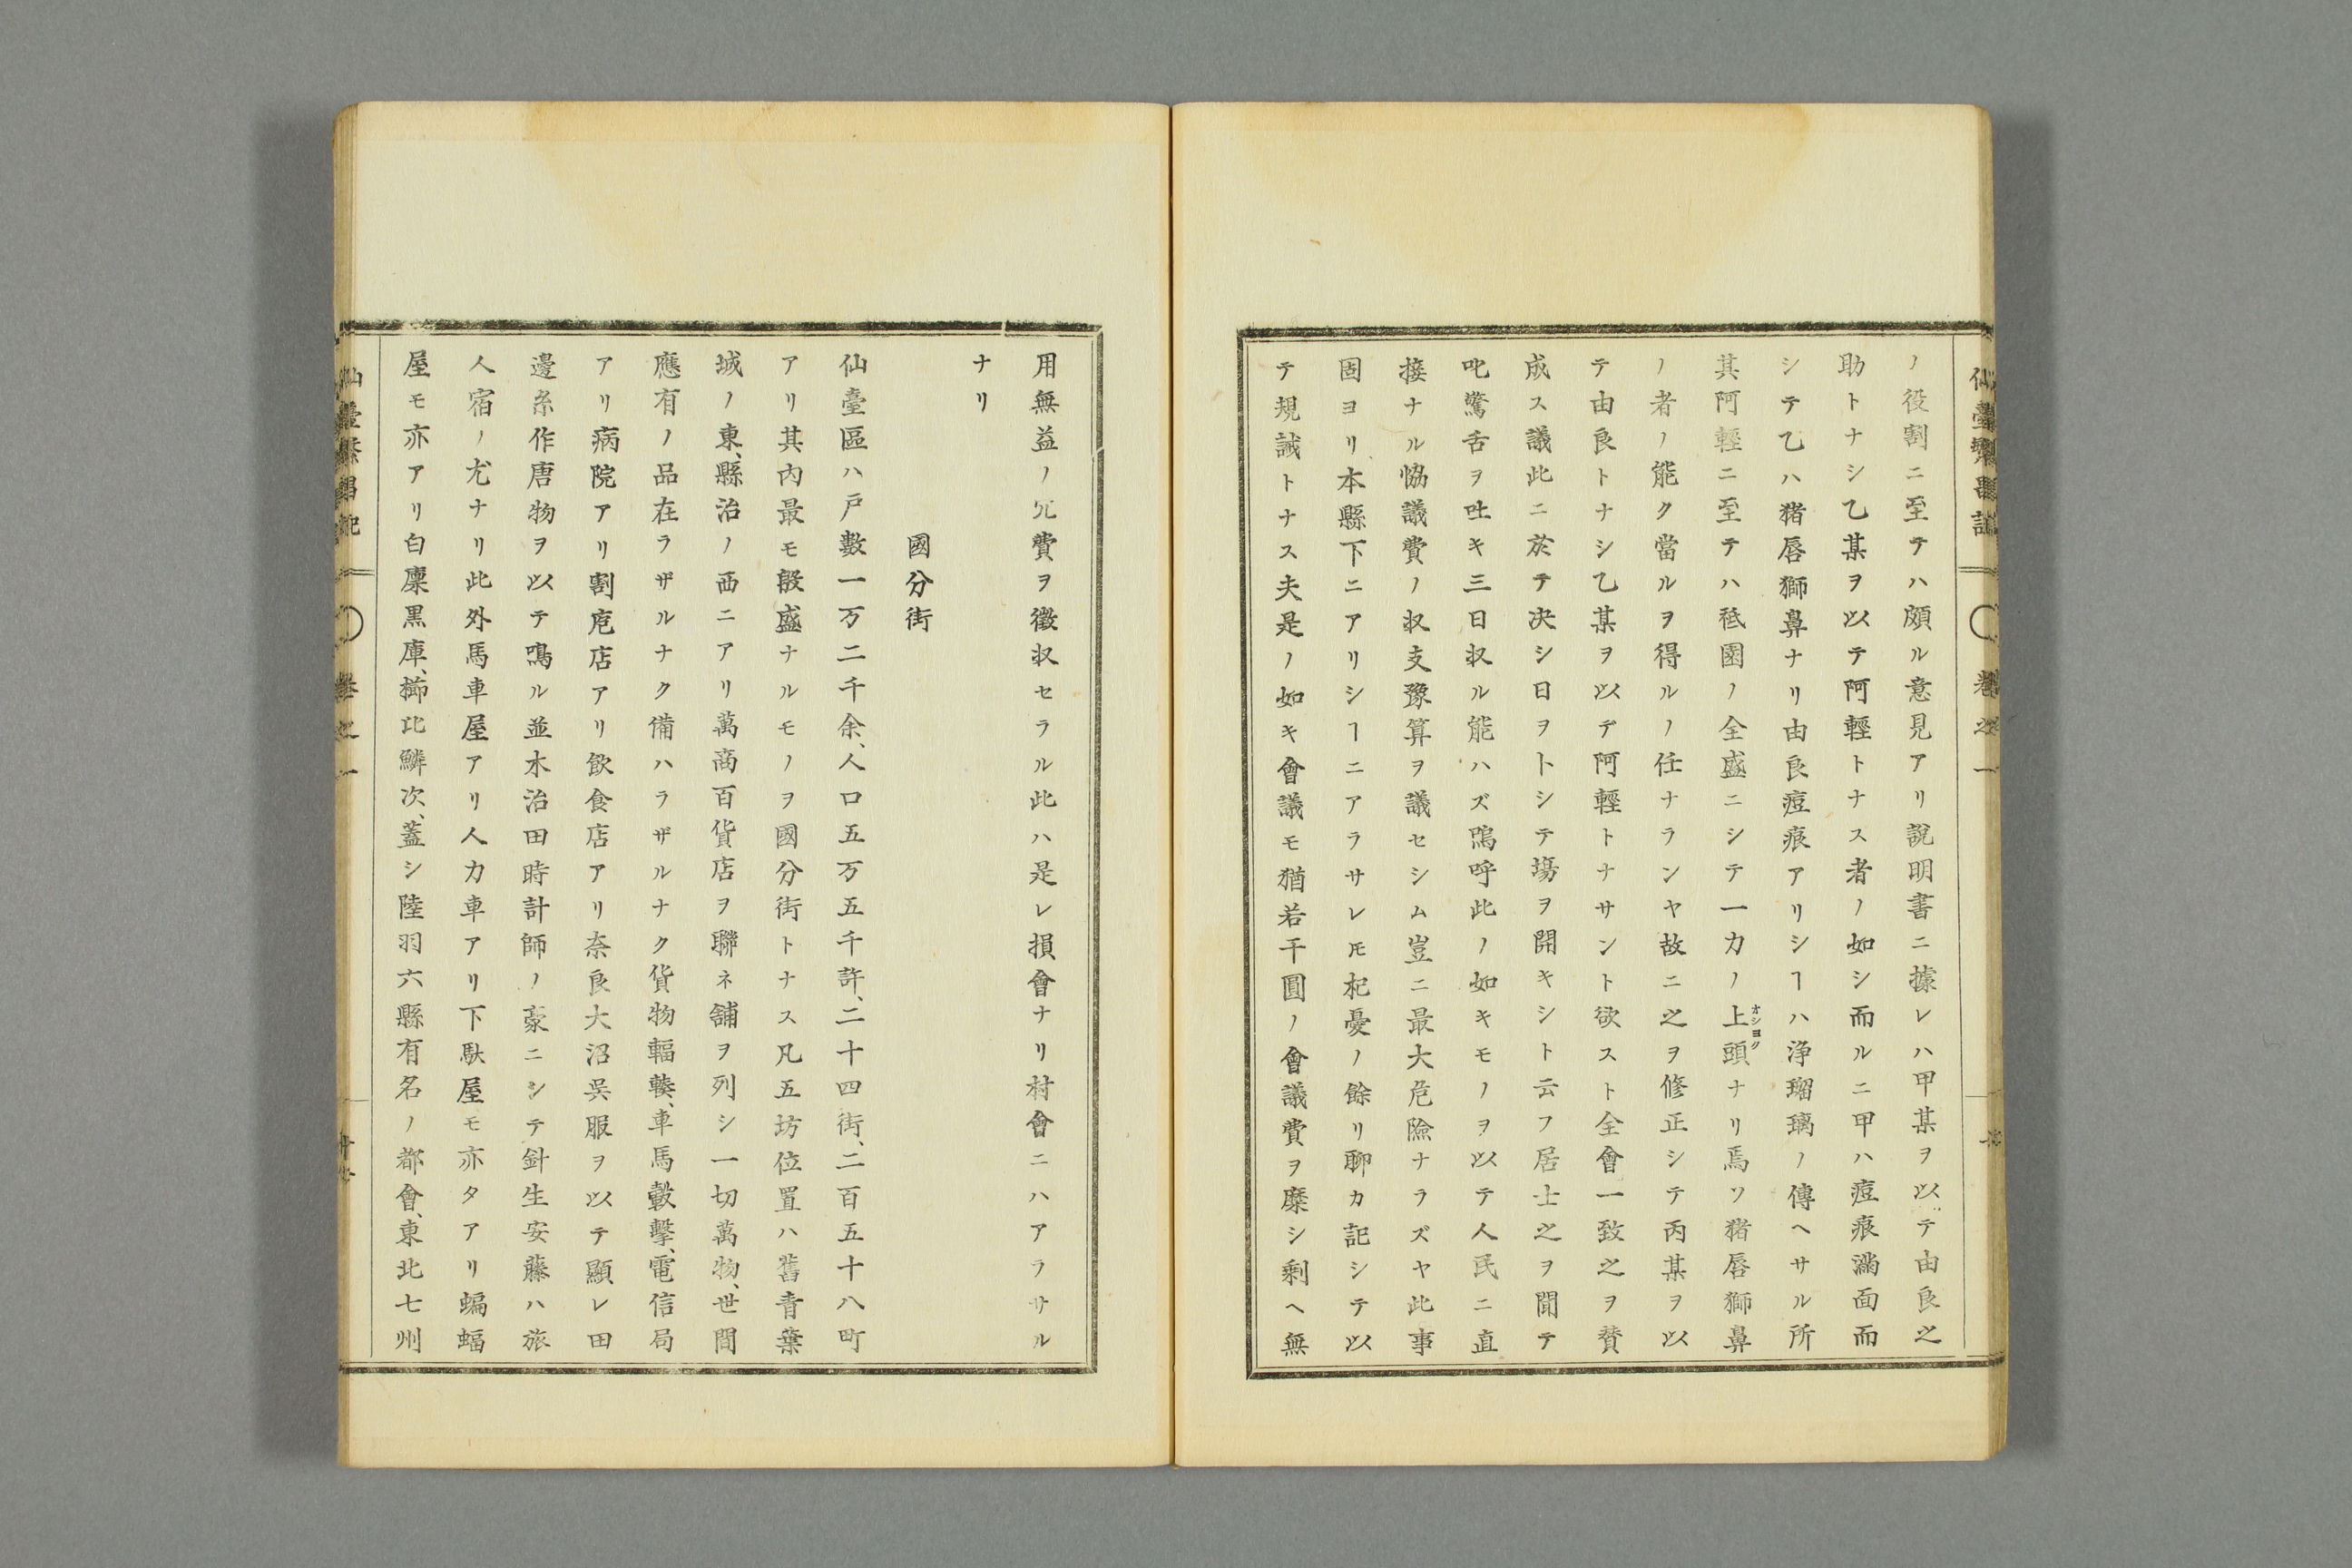 ノ役割ニ至テハ頗ル意見アリ説明書ニ據レハ甲某ヲ以テ由良之
助トナシ乙某ヲ以テ阿輕トナス者ノ如シ而ルニ甲ハ痘痕滿面而
シテ乙ハ猪唇獅鼻ナリ由良痘痕アリシヿハ浄瑠璃ノ傳ヘサル所
其阿輕ニ至テハ祗園ノ全盛ニシテ一力ノ上頭ナリ焉ソ猪唇獅鼻
オシヨク
ノ者ノ能ク當ルヲ得ルノ任ナランヤ故ニ之ヲ修正シテ丙某ヲ以
テ由良トナシ乙某ヲ以テ阿輕トナサント欲スト全會一致之ヲ賛
成ス議此ニ於テ决シ日ヲトシテ塲ヲ開キシト云フ居士之ヲ聞テ
叱驚舌ヲ吐キ三日収ル能ハズ嗚呼此ノ如キモノヲ以テ人民ニ直
接ナル恊議費ノ収支豫算ヲ議セシム豈ニ最大危險ナラズヤ此事
固ヨリ本縣下ニアリシヿニアラサレ𪜈杞憂ノ餘リ聊カ記シテ以
テ規誡トナス夫是ノ如キ會議モ猶若干圓ノ會議費ヲ糜シ剩ヘ無
用無益ノ冗費ヲ徴収セラル此ハ是レ損會ナリ村會ニハアラサル
ナリ
國分街
仙臺區ハ戸數一万二千余、人口五万五千許、二十四街、二百五十八町
アリ其内最モ殷盛ナルモノヲ國分街トナス凡五坊位置ハ舊青葉
城ノ東、縣治ノ西ニアリ萬商百貨店ヲ聯ネ舖ヲ列シ一切萬物、世間
應有ノ品在ラザルナク備ハラザルナク貨物輻輳、車馬轂擊、電信局
アリ病院アリ割庖店アリ飲食店アリ奈良大沼呉服ヲ以テ顯レ田
邊糸作唐物ヲ以テ鳴ル並木治田時計師ノ豪ニシテ針生安藤ハ旅
人宿ノ尤ナリ此外馬車屋アリ人力車アリ下駄屋モ亦タアリ蝙蝠
屋モ亦アリ白廩黒庫、櫛比鱗次、蓋シ陸羽六縣有名ノ都會、東北七州
仙臺繁昌記 卷之一